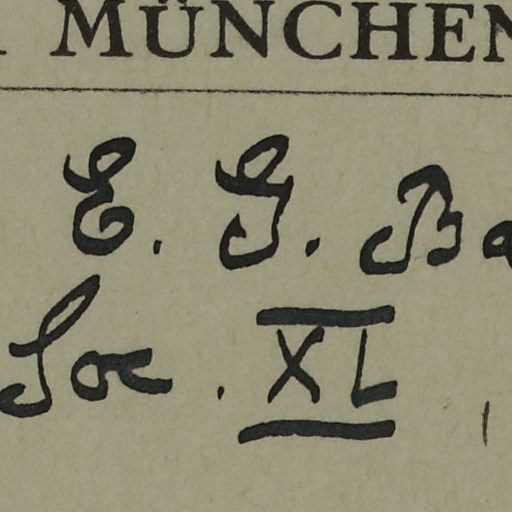 MÜNCHEN
E. G. Ba
Soc. XL